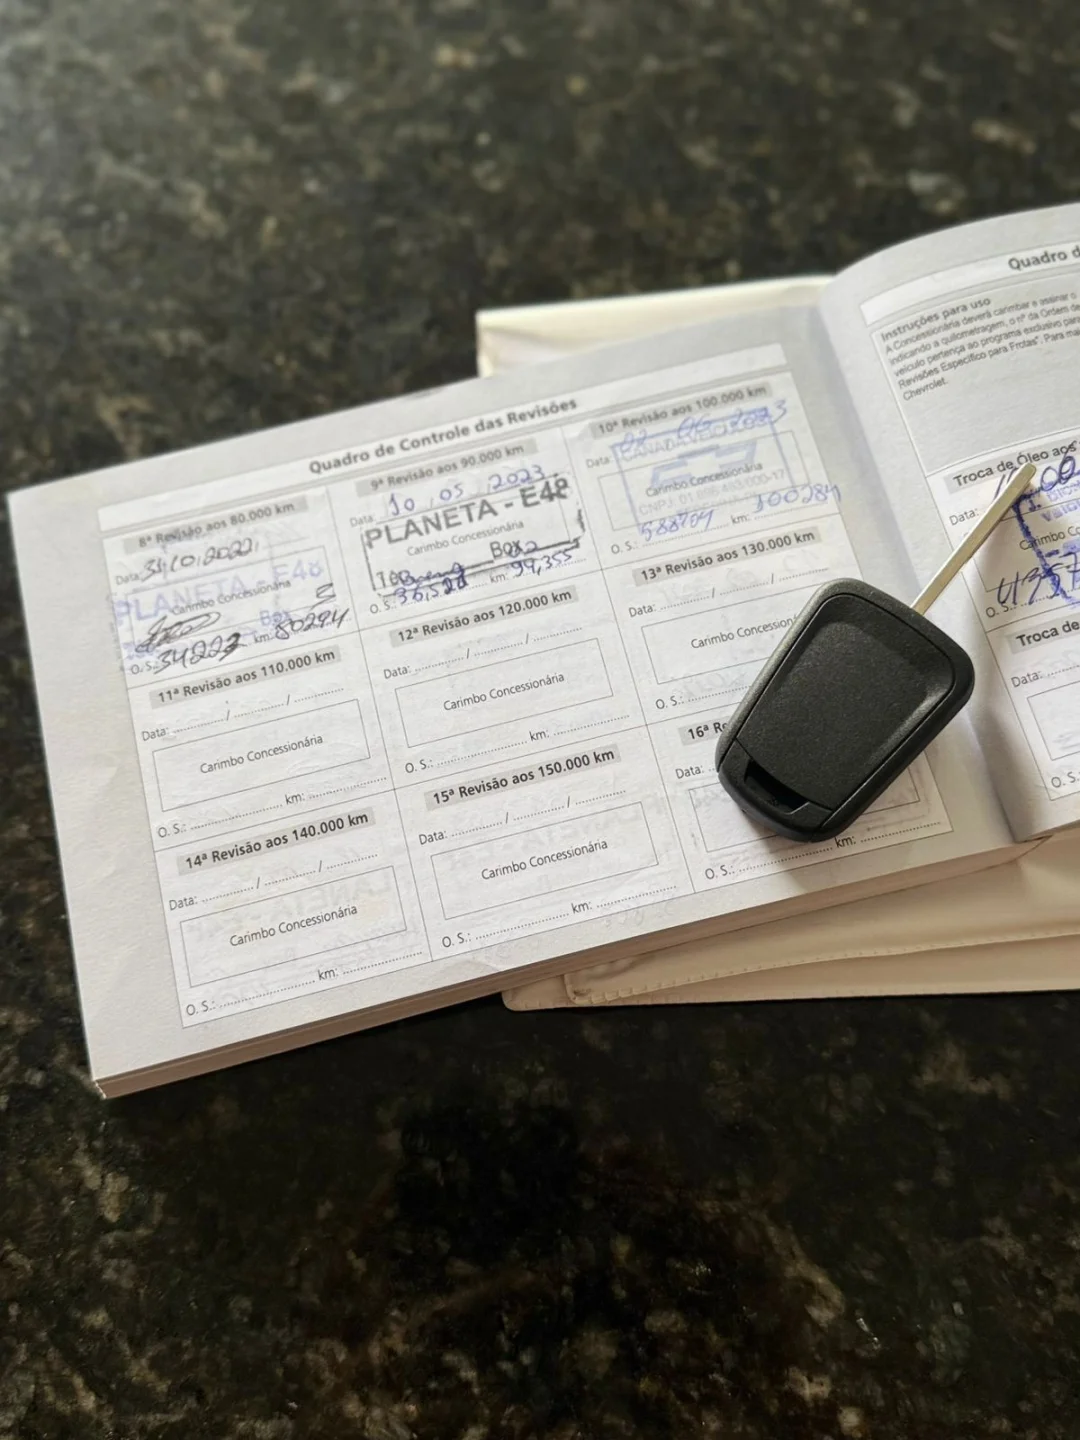 Quadro de Controle das Revisões
8ª Revisão aos 80.000 km
Data: 31.10.2022
PLANETA - E48
Carimbo Concessionária
Box
O. S.: 34223 km: 80294
9ª Revisão aos 90.000 km
Data: 10.05.2023
PLANETA - E48
Carimbo Concessionária
Box
O. S.: km: 99,355
10ª Revisão aos 100.000 km
Data:
Carimbo Concessionária
O. S.: 588704 km: 100284
11ª Revisão aos 110.000 km
Data: / /
Carimbo Concessionária
O. S.: km:
12ª Revisão aos 120.000 km
Data: / /
Carimbo Concessionária
O. S.: km:
13ª Revisão aos 130.000 km
Data: / /
Carimbo Concession
O. S.:
14ª Revisão aos 140.000 km
Data: / /
Carimbo Concessionária
O. S.: km:
15ª Revisão aos 150.000 km
Data: / /
Carimbo Concessionária
O. S.: km:
16ª Re
Data:
O. S.: km:
Quadro d
Instruções para uso
A Concessionária deverá carimbar e assinar o
indicando a quilometragem, o nº da Ordem de
veículo pertença ao programa exclusivo para
Revisões Específico para Frotas". Para mai
Chevrolet.
Troca de Óleo aos
Data:
Carimbo Co
O. S.:
Troca de
Data:
O. S.